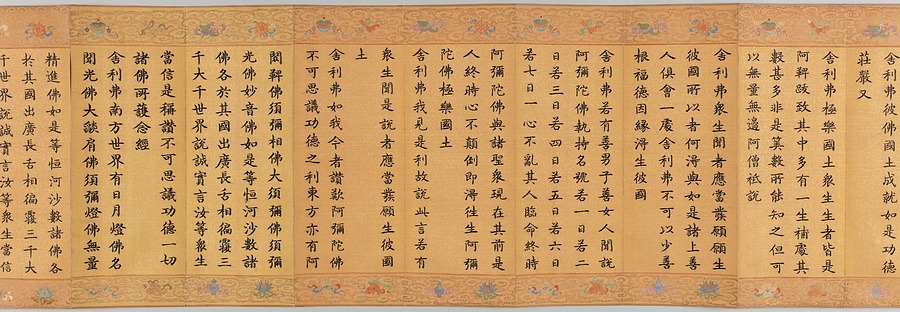 舍利弗彼佛國土成就如是功德
莊嚴又
舍利弗極樂國土衆生生者皆是
阿鞞跋致其中多有一生補處其
數甚多非是筭數所能知之但可
以無量無邊阿僧祇說
舍利弗衆生聞者應當發願願生
彼國所以者何得與如是諸上善
人俱會一處舍利弗不可以少善
根福德因緣得生彼國
舍利弗若有善男子善女人聞說
阿彌陀佛執持名號若一日若二
日若三日若四日若五日若六日
若七日一心不亂其人臨命終時
阿彌陀佛與諸聖衆現在其前是
人終時心不顛倒即得往生阿彌
陀佛極樂國土
舍利弗我見是利故說此言若有
衆生聞是說者應當發願生彼國
土
舍利弗如我今者讚歎阿彌陀佛
不可思議功德之利東方亦有阿
閦鞞佛須彌相佛大須彌佛須彌
光佛妙音佛如是等恒河沙數諸
佛各於其國出廣長舌相徧覆三
千大千世界說誠實言汝等衆生
當信是稱讚不可思議功德一切
諸佛所護念經
舍利弗南方世界有日月燈佛名
聞光佛大燄肩佛須彌燈佛無量
精進佛如是等恒河沙數諸佛各
於其國出廣長舌相徧覆三千大
千世界說誠實言汝等衆生當信